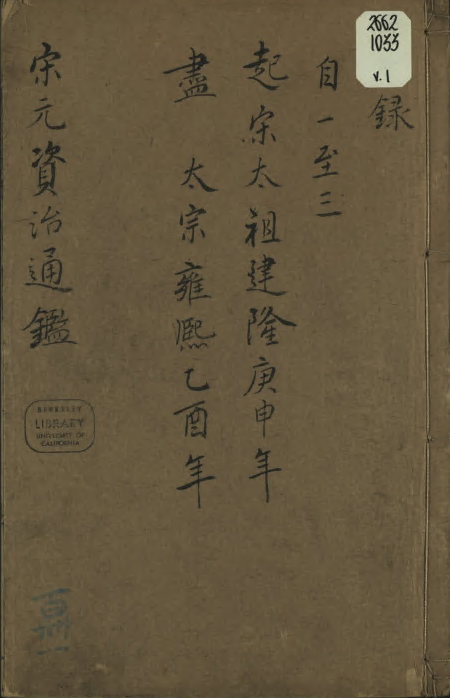 録
自一至三
起宋太祖建隆庚申年
盡 太宗雍熙乙酉年
宋元資治通鑑
2662
1033
v.1
LIBRARY
UNIVERSITY OF
CALIFORNIA